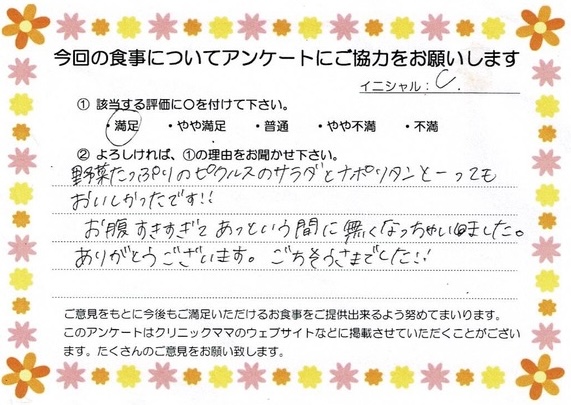 今回の食事についてアンケートにご協力をお願いします
イニシャル：C.
① 該当する評価に〇を付けて下さい。
・満足 ・やや満足 ・普通 ・やや不満 ・不満
② よろしければ、①の理由をお聞かせ下さい。
野菜たっぷりのピクルスのサラダとナポリタンとーっても
おいしかったです!!
お腹すきすぎてあっという間に無くなっちゃいました。
ありがとうございます。ごちそうさまでした!!
ご意見をもとに今後もご満足いただけるお食事をご提供出来るよう努めてまいります。
このアンケートはクリニックママのウェブサイトなどに掲載させていただくことがござい
ます。たくさんのご意見をお願い致します。